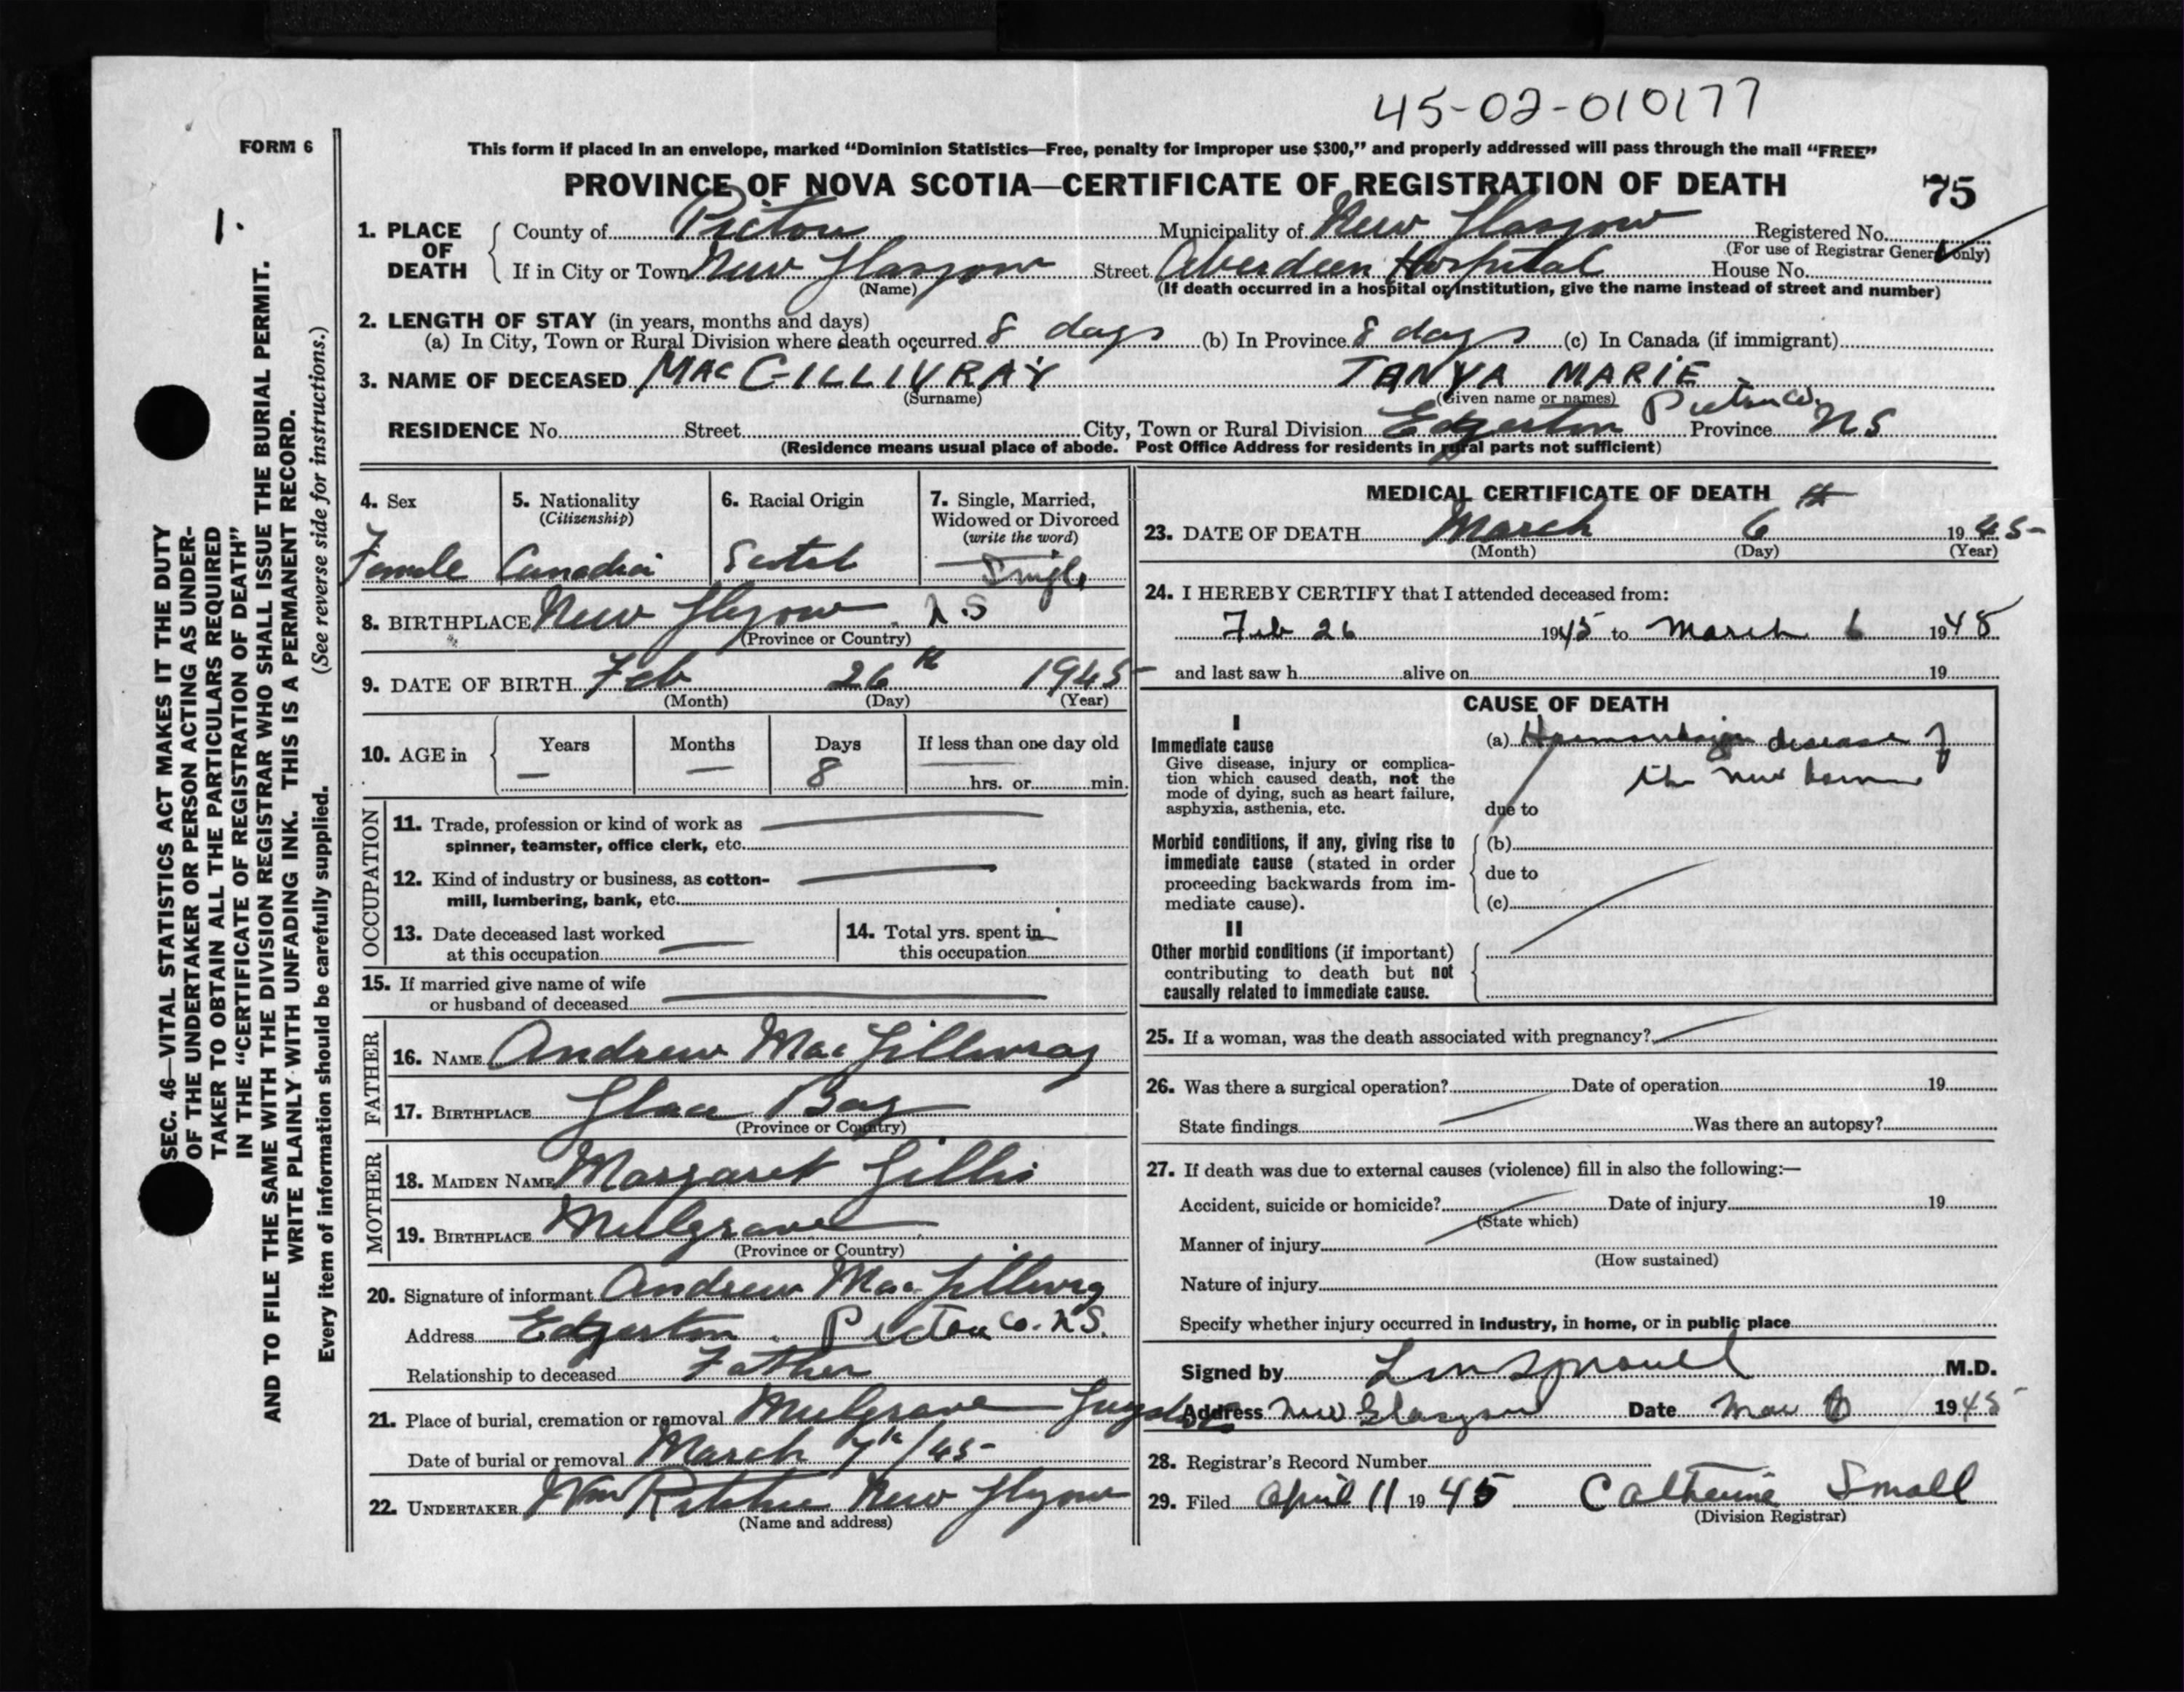 45-02-010177
FORM 6
This form if placed in an envelope, marked “Dominion Statistics—Free, penalty for improper use $300,” and properly addressed will pass through the mail “FREE”
PROVINCE OF NOVA SCOTIA—CERTIFICATE OF REGISTRATION OF DEATH 75
1.
1. PLACE OF DEATH
County of Pictou Municipality of New Glasgow Registered No.
(For use of Registrar General only)
If in City or Town New Glasgow Street Aberdeen Hospital House No.
(Name) (If death occurred in a hospital or institution, give the name instead of street and number)
2. LENGTH OF STAY (in years, months and days)
(a) In City, Town or Rural Division where death occurred 8 days (b) In Province 8 days (c) In Canada (if immigrant)
3. NAME OF DECEASED MacGILLIVRAY TANYA MARIE
(Surname) (Given name or names)
RESIDENCE No. Street City, Town or Rural Division Edgerton Pictou Co. Province N S
(Residence means usual place of abode. Post Office Address for residents in rural parts not sufficient)
4. Sex 5. Nationality 6. Racial Origin 7. Single, Married,
(Citizenship) Widowed or Divorced
(write the word)
Female Canadian Scotch Single
8. BIRTHPLACE New Glasgow N.S
(Province or Country)
9. DATE OF BIRTH Feb 26th 1945
(Month) (Day) (Year)
10. AGE in Years Months Days If less than one day old
— — 8 hrs. or min.
OCCUPATION
11. Trade, profession or kind of work as
spinner, teamster, office clerk, etc.
12. Kind of industry or business, as cotton-
mill, lumbering, bank, etc.
13. Date deceased last worked 14. Total yrs. spent in
at this occupation this occupation
15. If married give name of wife
or husband of deceased
FATHER
16. NAME Andrew MacGillivray
17. BIRTHPLACE Glace Bay
(Province or Country)
MOTHER
18. MAIDEN NAME Margaret Gillis
19. BIRTHPLACE Mulgrave
(Province or Country)
20. Signature of informant Andrew MacGillivray
Address Edgerton. Pictou Co. N.S.
Relationship to deceased Father
21. Place of burial, cremation or removal Mulgrave
Date of burial or removal March 7th/45
22. UNDERTAKER Wm Ritchie New Glasgow
(Name and address)
MEDICAL CERTIFICATE OF DEATH
23. DATE OF DEATH March 6th 1945
(Month) (Day) (Year)
24. I HEREBY CERTIFY that I attended deceased from:
Feb 26 1945 to March 6 1945
and last saw h alive on 19
CAUSE OF DEATH
I
Immediate cause
Give disease, injury or complica-
tion which caused death, not the
mode of dying, such as heart failure,
asphyxia, asthenia, etc.
(a) Haemorrhagic disease of
the new born
due to
Morbid conditions, if any, giving rise to
immediate cause (stated in order
proceeding backwards from im-
mediate cause).
(b)
due to
(c)
II
Other morbid conditions (if important)
contributing to death but not
causally related to immediate cause.
25. If a woman, was the death associated with pregnancy?
26. Was there a surgical operation? Date of operation 19
State findings Was there an autopsy?
27. If death was due to external causes (violence) fill in also the following:—
Accident, suicide or homicide? Date of injury 19
(State which)
Manner of injury
(How sustained)
Nature of injury
Specify whether injury occurred in industry, in home, or in public place
Signed by M.D.
Address New Glasgow Date Mar 19 45
28. Registrar’s Record Number
29. Filed April 11 1945 Catherine Small
(Division Registrar)
SEC. 46—VITAL STATISTICS ACT MAKES IT THE DUTY
OF THE UNDERTAKER OR PERSON ACTING AS UNDER-
TAKER TO OBTAIN ALL THE PARTICULARS REQUIRED
IN THE “CERTIFICATE OF REGISTRATION OF DEATH”
AND TO FILE THE SAME WITH THE DIVISION REGISTRAR WHO SHALL ISSUE THE BURIAL PERMIT.
WRITE PLAINLY WITH UNFADING INK. THIS IS A PERMANENT RECORD.
Every item of information should be carefully supplied. (See reverse side for instructions.)